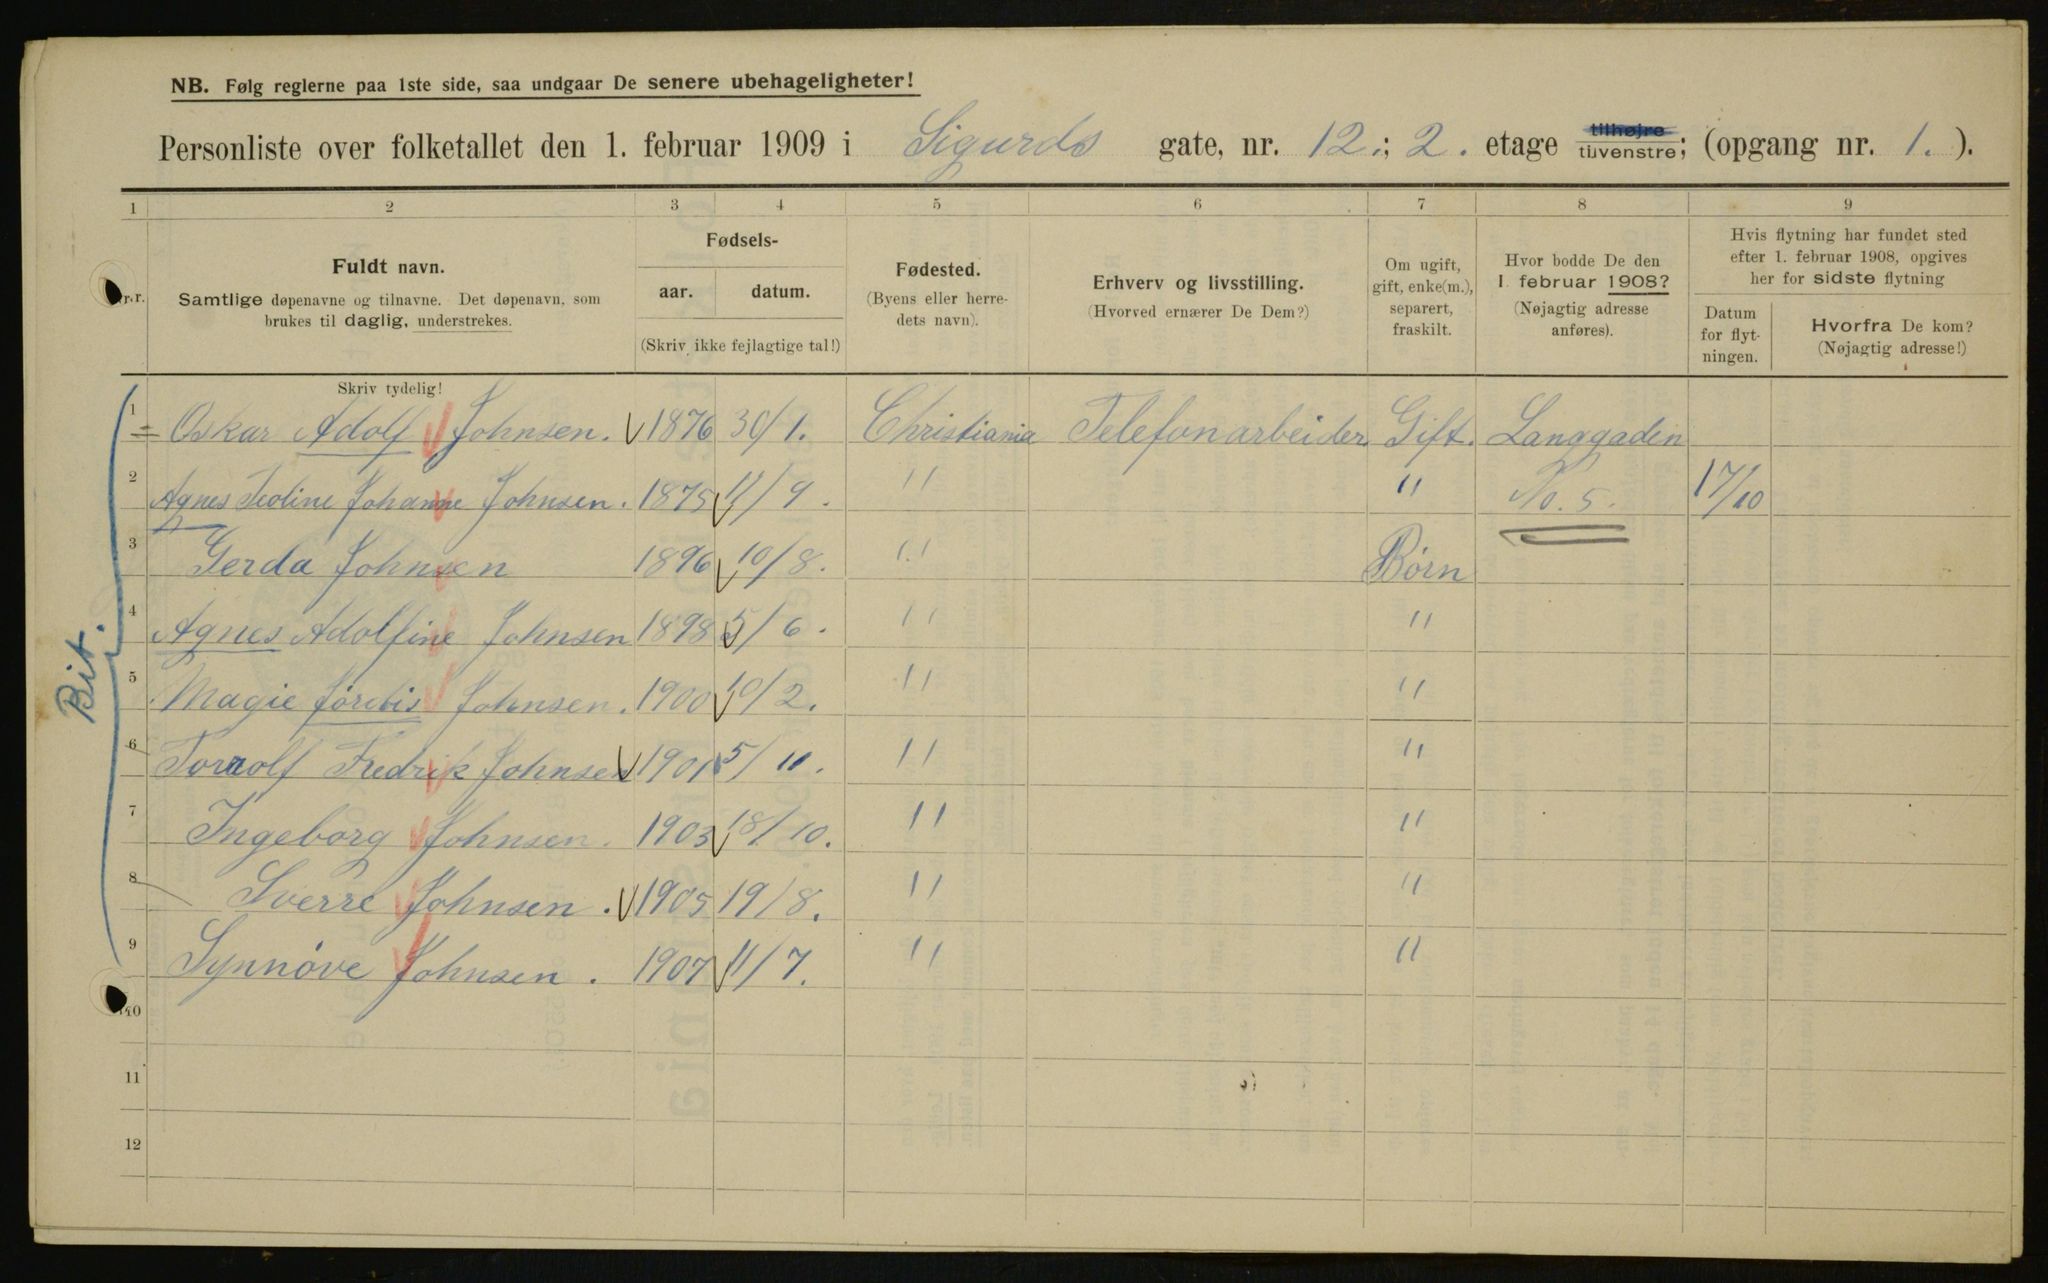 NB. Følg reglerne paa 1ste side, saa undgaar De senere ubehageligheter!
Personliste over folketallet den 1. februar 1909 i Sigurds gate, nr. 12.; 2. etage tilhøjre tilvenstre; (opgang nr. 1.).
1 2 3 4 5 6 7 8 9
Nr. Fuldt navn. Samtlige døpenavne og tilnavne. Det døpenavn, som brukes til daglig, understrekes.
Skriv tydelig!
Fødsels- aar. datum. (Skriv ikke fejlagtige tal!)
Fødested. (Byens eller herredets navn).
Erhverv og livsstilling. (Hvorved ernærer De Dem?)
Om ugift, gift, enke(m.), separert, fraskilt.
Hvor bodde De den 1. februar 1908? (Nøjagtig adresse anføres).
Hvis flytning har fundet sted efter 1. februar 1908, opgives her for sidste flytning
Datum for flytningen. Hvorfra De kom? (Nøjagtig adresse!)
Bit.
1 Oskar Adolf Johnsen. 1876 30/1. Christiania Telefonarbeider Gift. Langgaden
2 Agnes Teoline Johanne Johnsen. 1875 11/9. " " No. 5. 17/10
3 Gerda Johnsen 1896 10/8. " Børn
4 Agnes Adolfine Johnsen 1898 5/6. " "
5 Magie Jørdis Johnsen. 1900 10/2. " "
6 Torolf Fredrik Johnsen 1901 5/11. " "
7 Ingeborg Johnsen. 1903 18/10. " "
8 Sverre Johnsen. 1905 19/8. " "
9 Synnøve Johnsen. 1907 11/7. " "
10
11
12